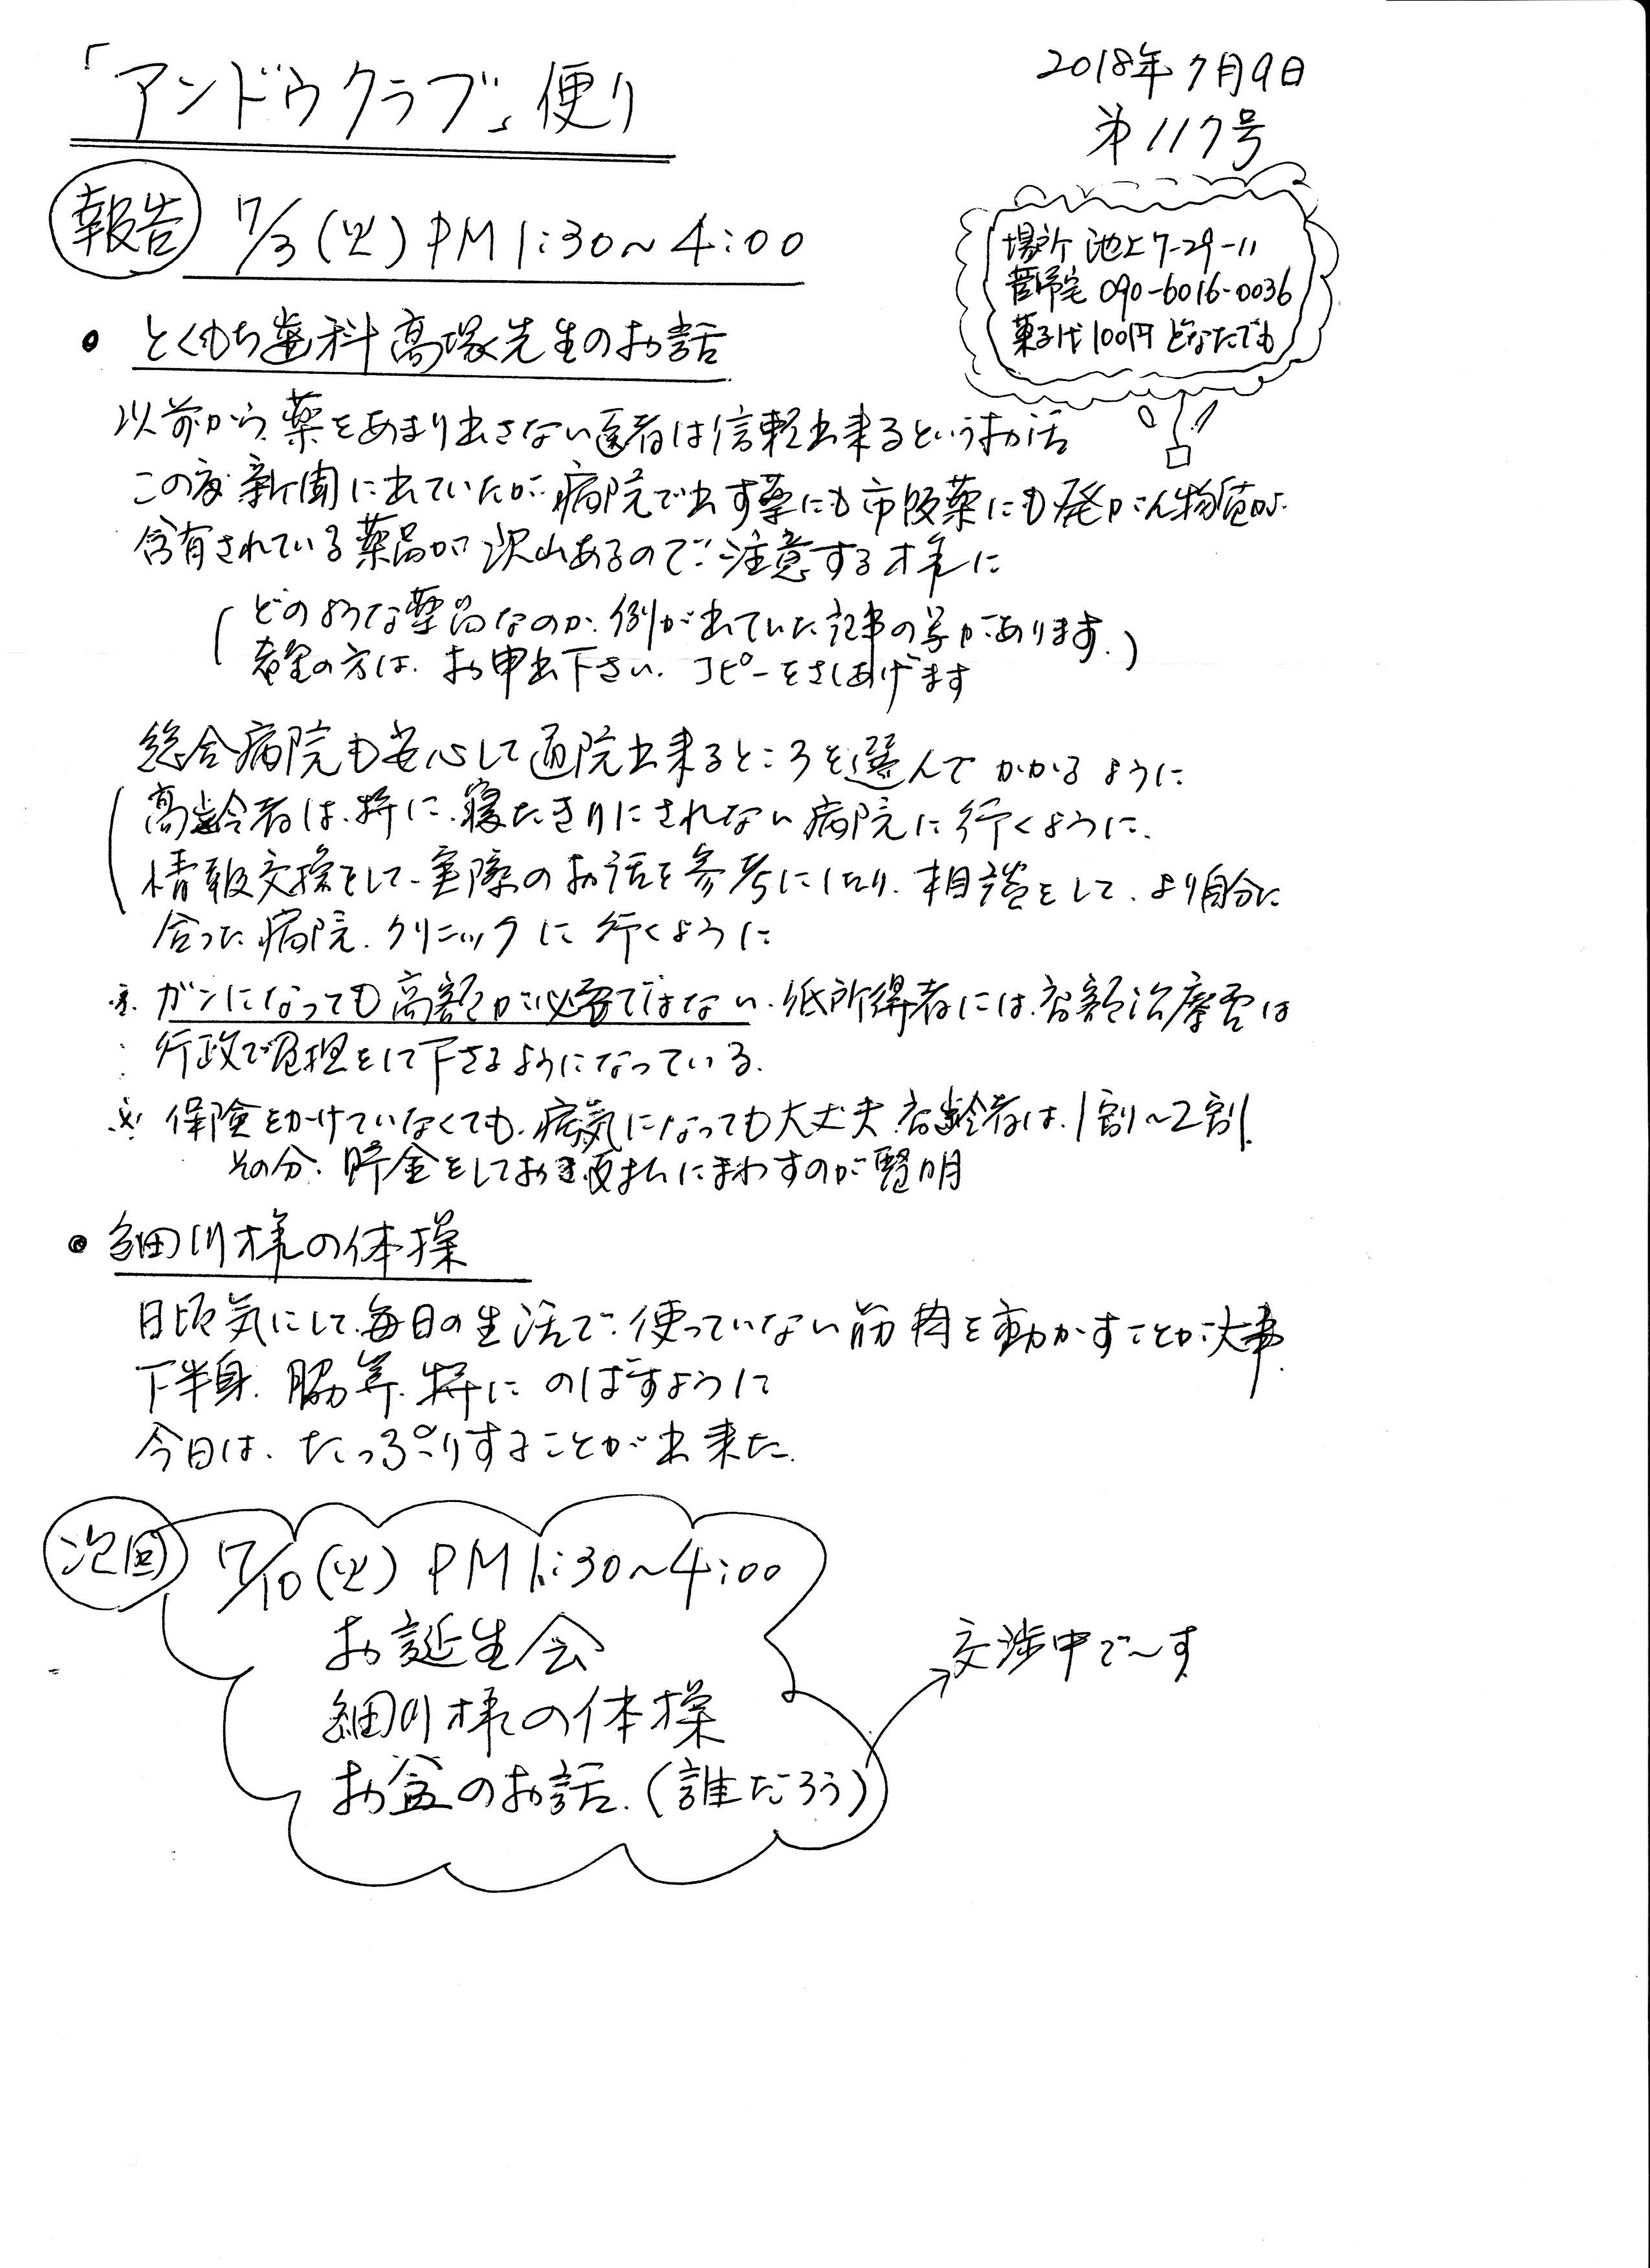 「アンドウクラブ」便り
2018年7月9日
第117号
報告 7/3(火)PM1:30~4:00
場所 池上7-29-11
菅野宅 090-6016-0036
菓子代100円 どなたでも
・とくもち歯科高塚先生のお話
以前から、薬をあまり出さない医者は信頼出来るというお話
この度新聞に出ていたが、病院で出す薬にも市販薬にも発がん物質が
含有されている薬品が沢山あるので注意する様に
(どのような薬品なのか、例が出ていた記事の写があります。)
希望の方は、お申出下さい。コピーをさしあげます
総合病院も安心して通院出来るところを選んでかかるように
(高齢者は、特に、寝たきりにされない病院に行くように、
情報交換をして、実際のお話を参考にしたり、相談をして、より自分に
合った病院、クリニックに行くように
※ガンになっても高額が必要ではない、低所得者には、高額治療費は
行政で負担をして下さるようになっている。
※保険をかけていなくても、病気になっても大丈夫 高齢者は、1割~2割、
その分、貯金をしておき支払にまわすのが賢明
・細川様の体操
日頃気にして、毎日の生活で、使っていない筋肉を動かすことが大事、
下半身、脇等、特にのばすように
今日は、たっぷりすることが出来た。
次回 7/10(火)PM1:30~4:00
お誕生会
細川様の体操
お盆のお話、(誰だろう)
→交渉中で~す